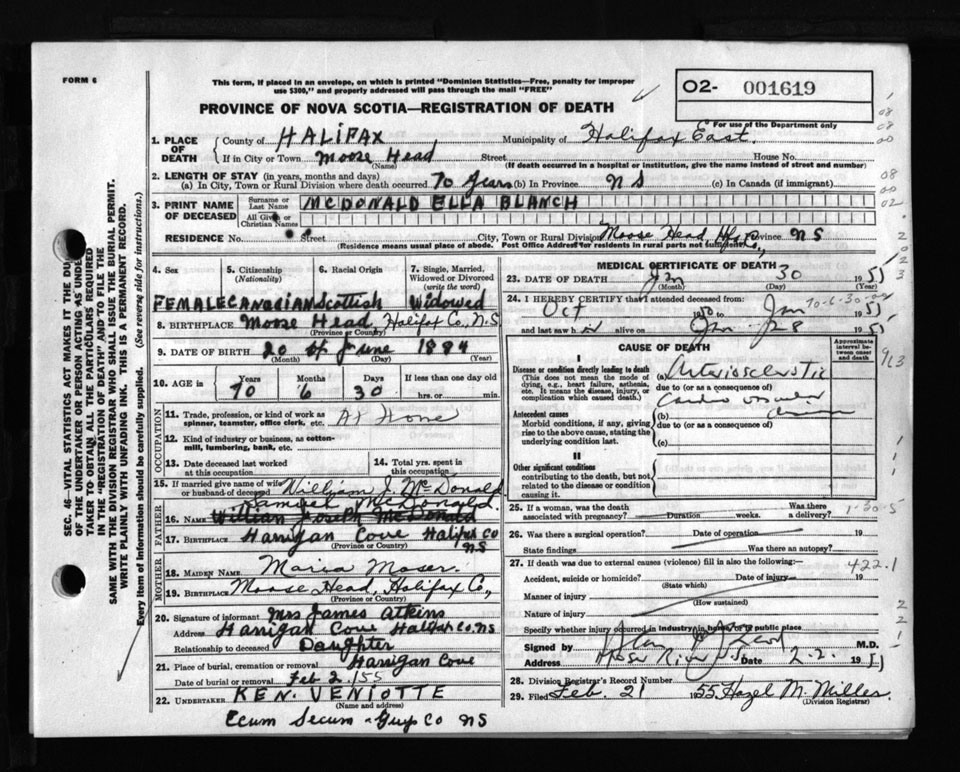 FORM 6
This form, if placed in an envelope, on which is printed "Dominion Statistics—Free, penalty for improper
use $300," and properly addressed will pass through the mail "FREE"
O2- 001619
PROVINCE OF NOVA SCOTIA—REGISTRATION OF DEATH
For use of the Department only
1. PLACE OF DEATH County of HALIFAX Municipality of Halifax East.
If in City or Town Moose Head Street House No.
(Name) (If death occurred in a hospital or institution, give the name instead of street and number)
2. LENGTH OF STAY (in years, months and days)
(a) In City, Town or Rural Division where death occurred 70 years (b) In Province N S (c) In Canada (if immigrant)
3. PRINT NAME OF DECEASED Surname or Last Name MCDONALD ELLA BLANCH
All Given or Christian Names
RESIDENCE No. Street City, Town or Rural Division Moose Head Hfx Co, Province NS
(Residence means usual place of abode. Post Office Address for residents in rural parts not sufficient)
SEC. 46—VITAL STATISTICS ACT MAKES IT THE DUTY
OF THE UNDERTAKER OR PERSON ACTING AS UNDERTAKER
TO OBTAIN ALL THE PARTICULARS REQUIRED
IN THE "REGISTRATION OF DEATH" AND TO FILE THE
SAME WITH THE DIVISION REGISTRAR WHO SHALL ISSUE THE BURIAL PERMIT.
WRITE PLAINLY WITH UNFADING INK. THIS IS A PERMANENT RECORD.
Every item of information should be carefully supplied. (See reverse side for instructions.)
4. Sex 5. Citizenship (Nationality) 6. Racial Origin 7. Single, Married, Widowed or Divorced (write the word)
FEMALE Canadian Scottish Widowed
8. BIRTHPLACE Moose Head, Halifax Co, N.S
(Province or Country)
9. DATE OF BIRTH 20 of June 1884
(Month) (Day) (Year)
10. AGE in Years Months Days If less than one day old
70 6 30 hrs. or min.
OCCUPATION
11. Trade, profession, or kind of work as
spinner, teamster, office clerk, etc. At Home
12. Kind of industry or business, as cotton-
mill, lumbering, bank, etc.
13. Date deceased last worked
at this occupation
14. Total yrs. spent in
this occupation
15. If married give name of wife
or husband of deceased William J. McDonald
FATHER
Samuel McDonald.
16. NAME William Joseph McDonald
17. BIRTHPLACE Harrigan Cove Halifax Co
NS
(Province or Country)
MOTHER
18. MAIDEN NAME Maria Moser.
19. BIRTHPLACE Moose Head, Halifax Co,
(Province or Country)
20. Signature of informant Mrs James Atkins
Address Harrigan Cove Halifax Co. NS
Relationship to deceased Daughter
21. Place of burial, cremation or removal Harrigan Cove
Date of burial or removal Feb 2/55
22. UNDERTAKER KEN. VENIOTTE
(Name and address)
Ecum Secum - Guy Co NS
MEDICAL CERTIFICATE OF DEATH
23. DATE OF DEATH Jan 30 1955
(Month) (Day)
24. I HEREBY CERTIFY that I attended deceased from:
Oct 1950 to Jan 1955
and last saw h alive on Jan 28 1955
CAUSE OF DEATH
Approximate interval between onset and death
I
Disease or condition directly leading to death
(This does not mean the mode of
dying, e.g., heart failure, asthenia,
etc. It means the disease, injury, or
complication which caused death.)
(a) Arteriosclerotic
due to (or as a consequence of)
Antecedent causes
Morbid conditions, if any, giving
rise to the above cause, stating the
underlying condition last.
(b)
due to (or as a consequence of)
(c)
II
Other significant conditions
contributing to the death, but not
related to the disease or condition
causing it.
25. If a woman, was the death
associated with pregnancy? Duration weeks. Was there
a delivery?
26. Was there a surgical operation? Date of operation 19
State findings Was there an autopsy?
27. If death was due to external causes (violence) fill in also the following:—
Accident, suicide or homicide? Date of injury 19
(State which)
Manner of injury
(How sustained)
Nature of injury
Specify whether injury occurred in industry, in home, or in public place
422.1
Signed by M.D.
Address Moser River N.S Date 2.2. 1955
28. Division Registrar's Record Number
29. Filed Feb. 21 1955 Hazel M. Miller
(Division Registrar)